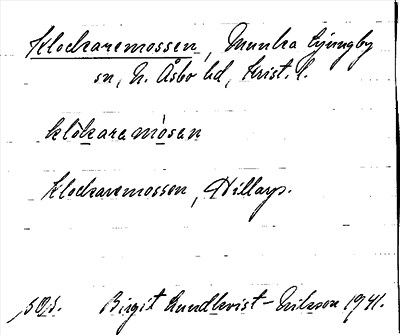 Klockaremossen, Munka Ljungby
sn, N. Åsbo hd, Krist. l.
klòkaramòsan
Klockaremossen, Hillarp.
Birgit Lundkvist-Erikson 1941.